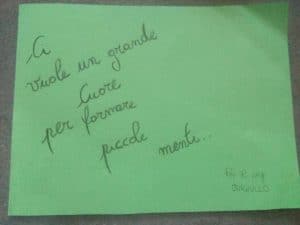 Ci
vuole un grande
Cuore
per formare
piccole menti...